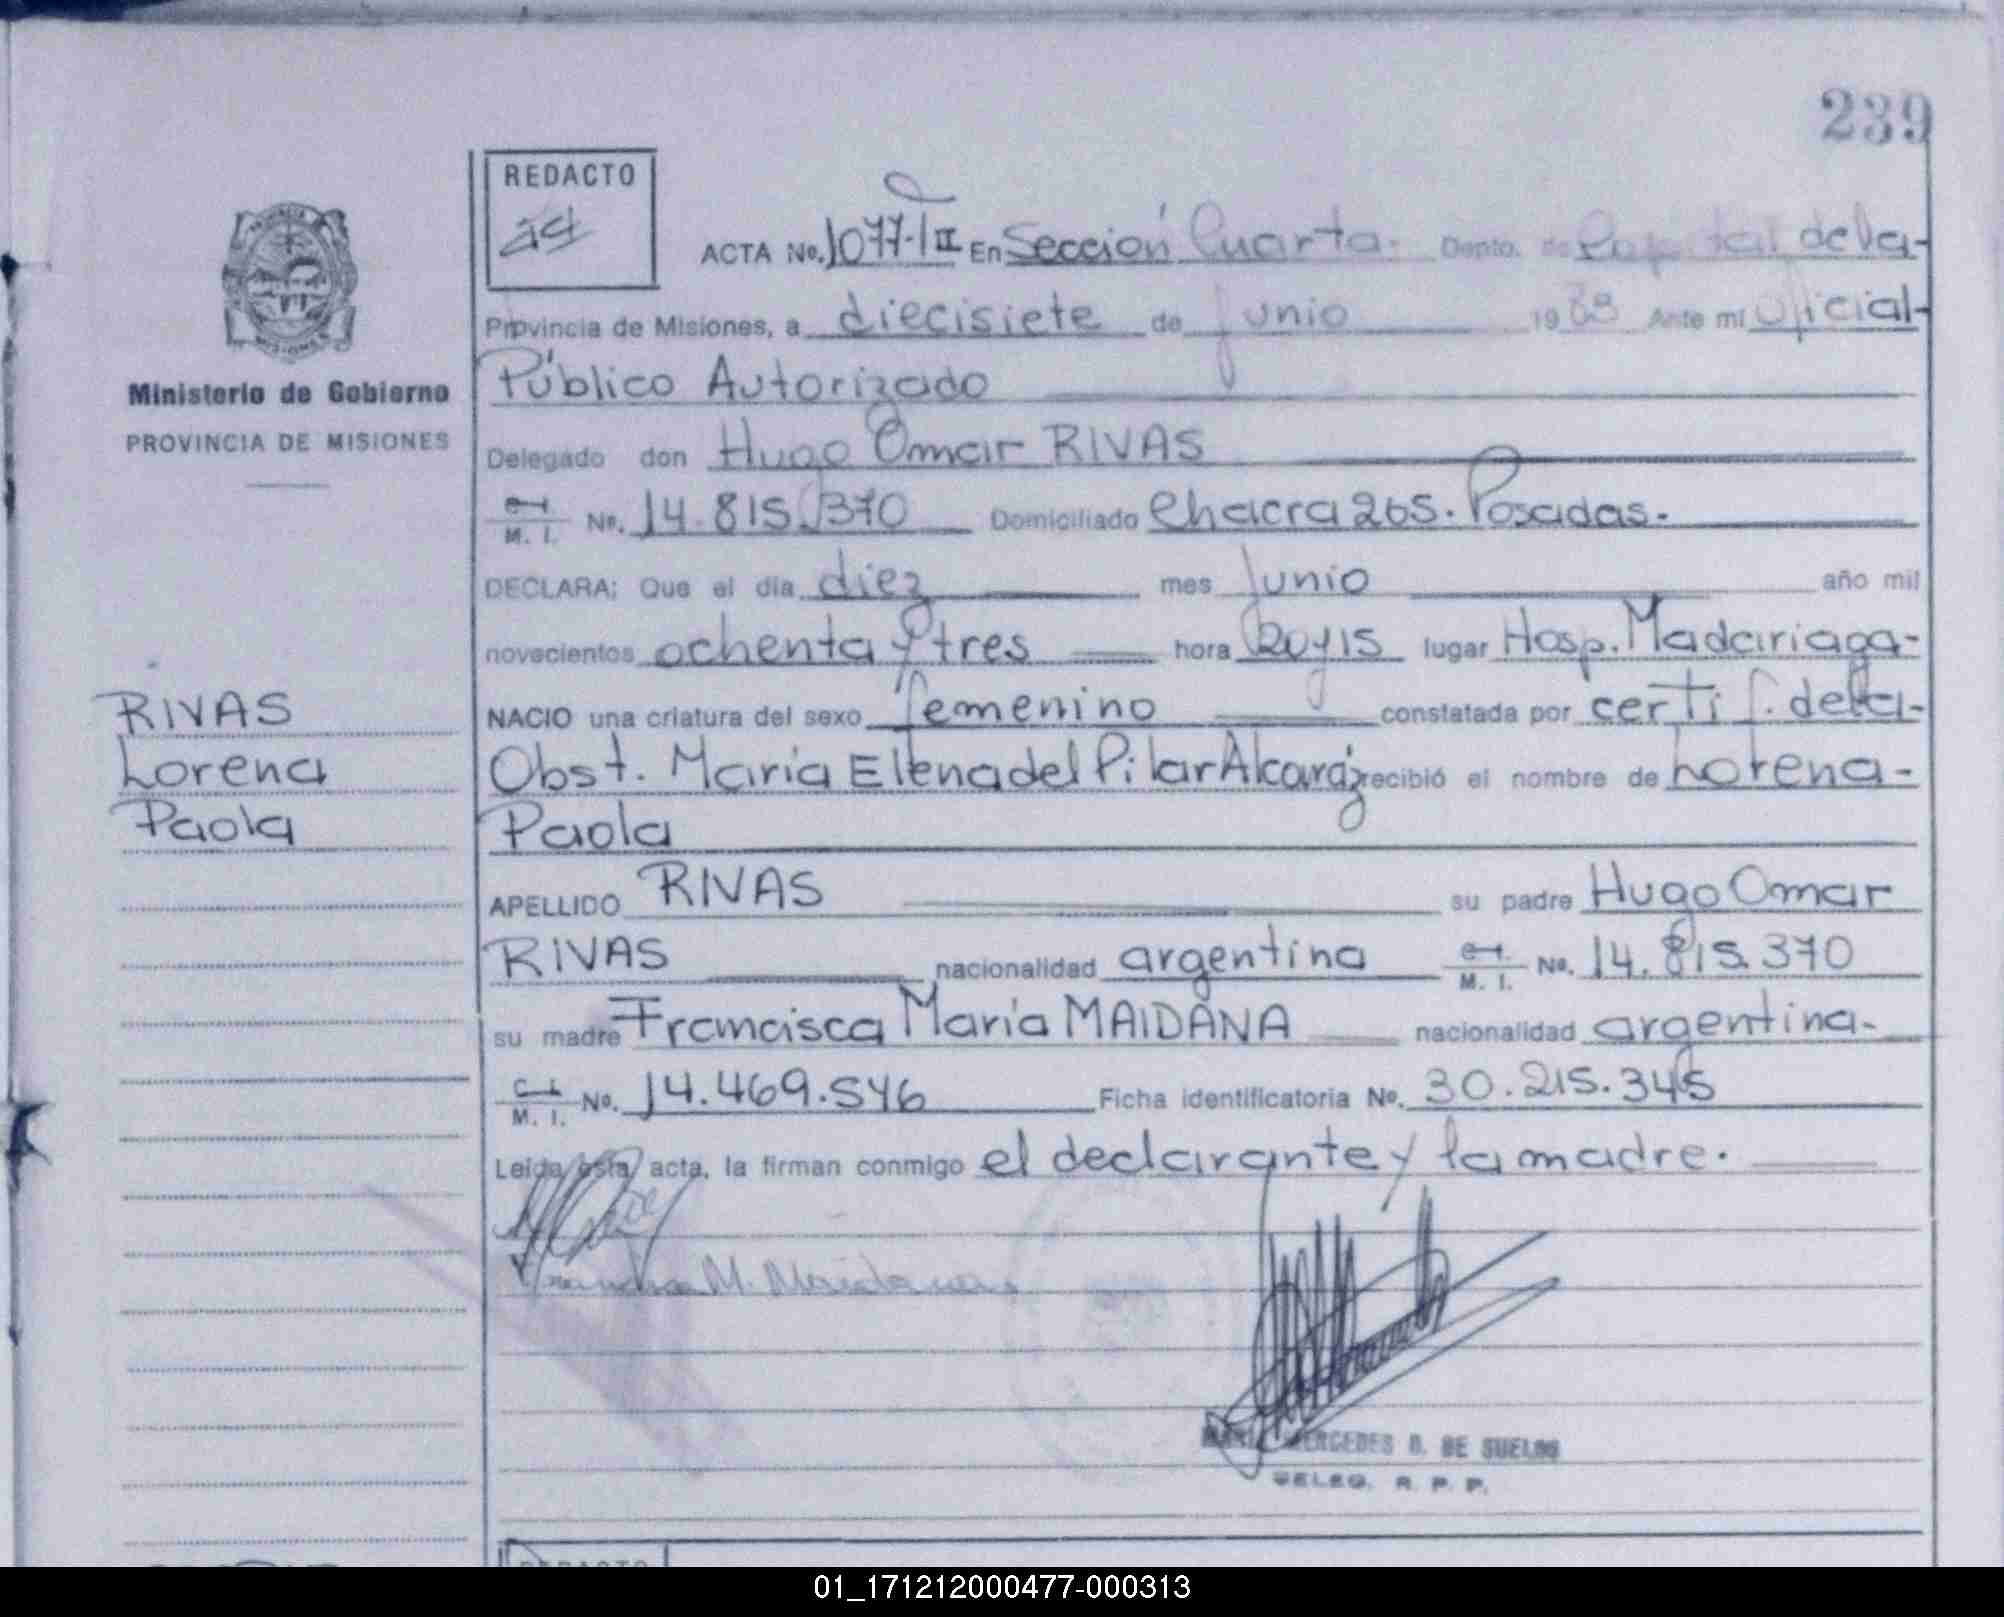 239
REDACTO
ACTA No. 1077-T II En Sección Cuarta. Depto. de Capital de la-
Provincia de Misiones, a diecisiete de Junio 1983 Ante mí Oficial-
Público Autorizado
Ministerio de Gobierno
PROVINCIA DE MISIONES
Delegado don Hugo Omar RIVAS
M. I. No. 14.815.370 Domiciliado Chacra 265. Posadas.
DECLARA: Que el día diez mes Junio año mil
novecientos ochenta y tres hora 20y15 lugar Hosp. Madariaga-
NACIO una criatura del sexo femenino constatada por certif. de la-
Obst. María Elena del Pilar Alcaráz recibió el nombre de Lorena-
Paola
RIVAS
Lorena
Paola
APELLIDO RIVAS su padre Hugo Omar
RIVAS nacionalidad argentina M. I. No. 14.815.370
su madre Francisca María MAIDANA nacionalidad argentina-
M. I. No. 14.469.546 Ficha identificatoria No. 30.215.345
Leida esta acta, la firman conmigo el declarante y la madre.
Francisca M. Maidana
MERCEDES B. DE SUELDO
DELEG. R. P. P.
REDACTO
01_171212000477-000313